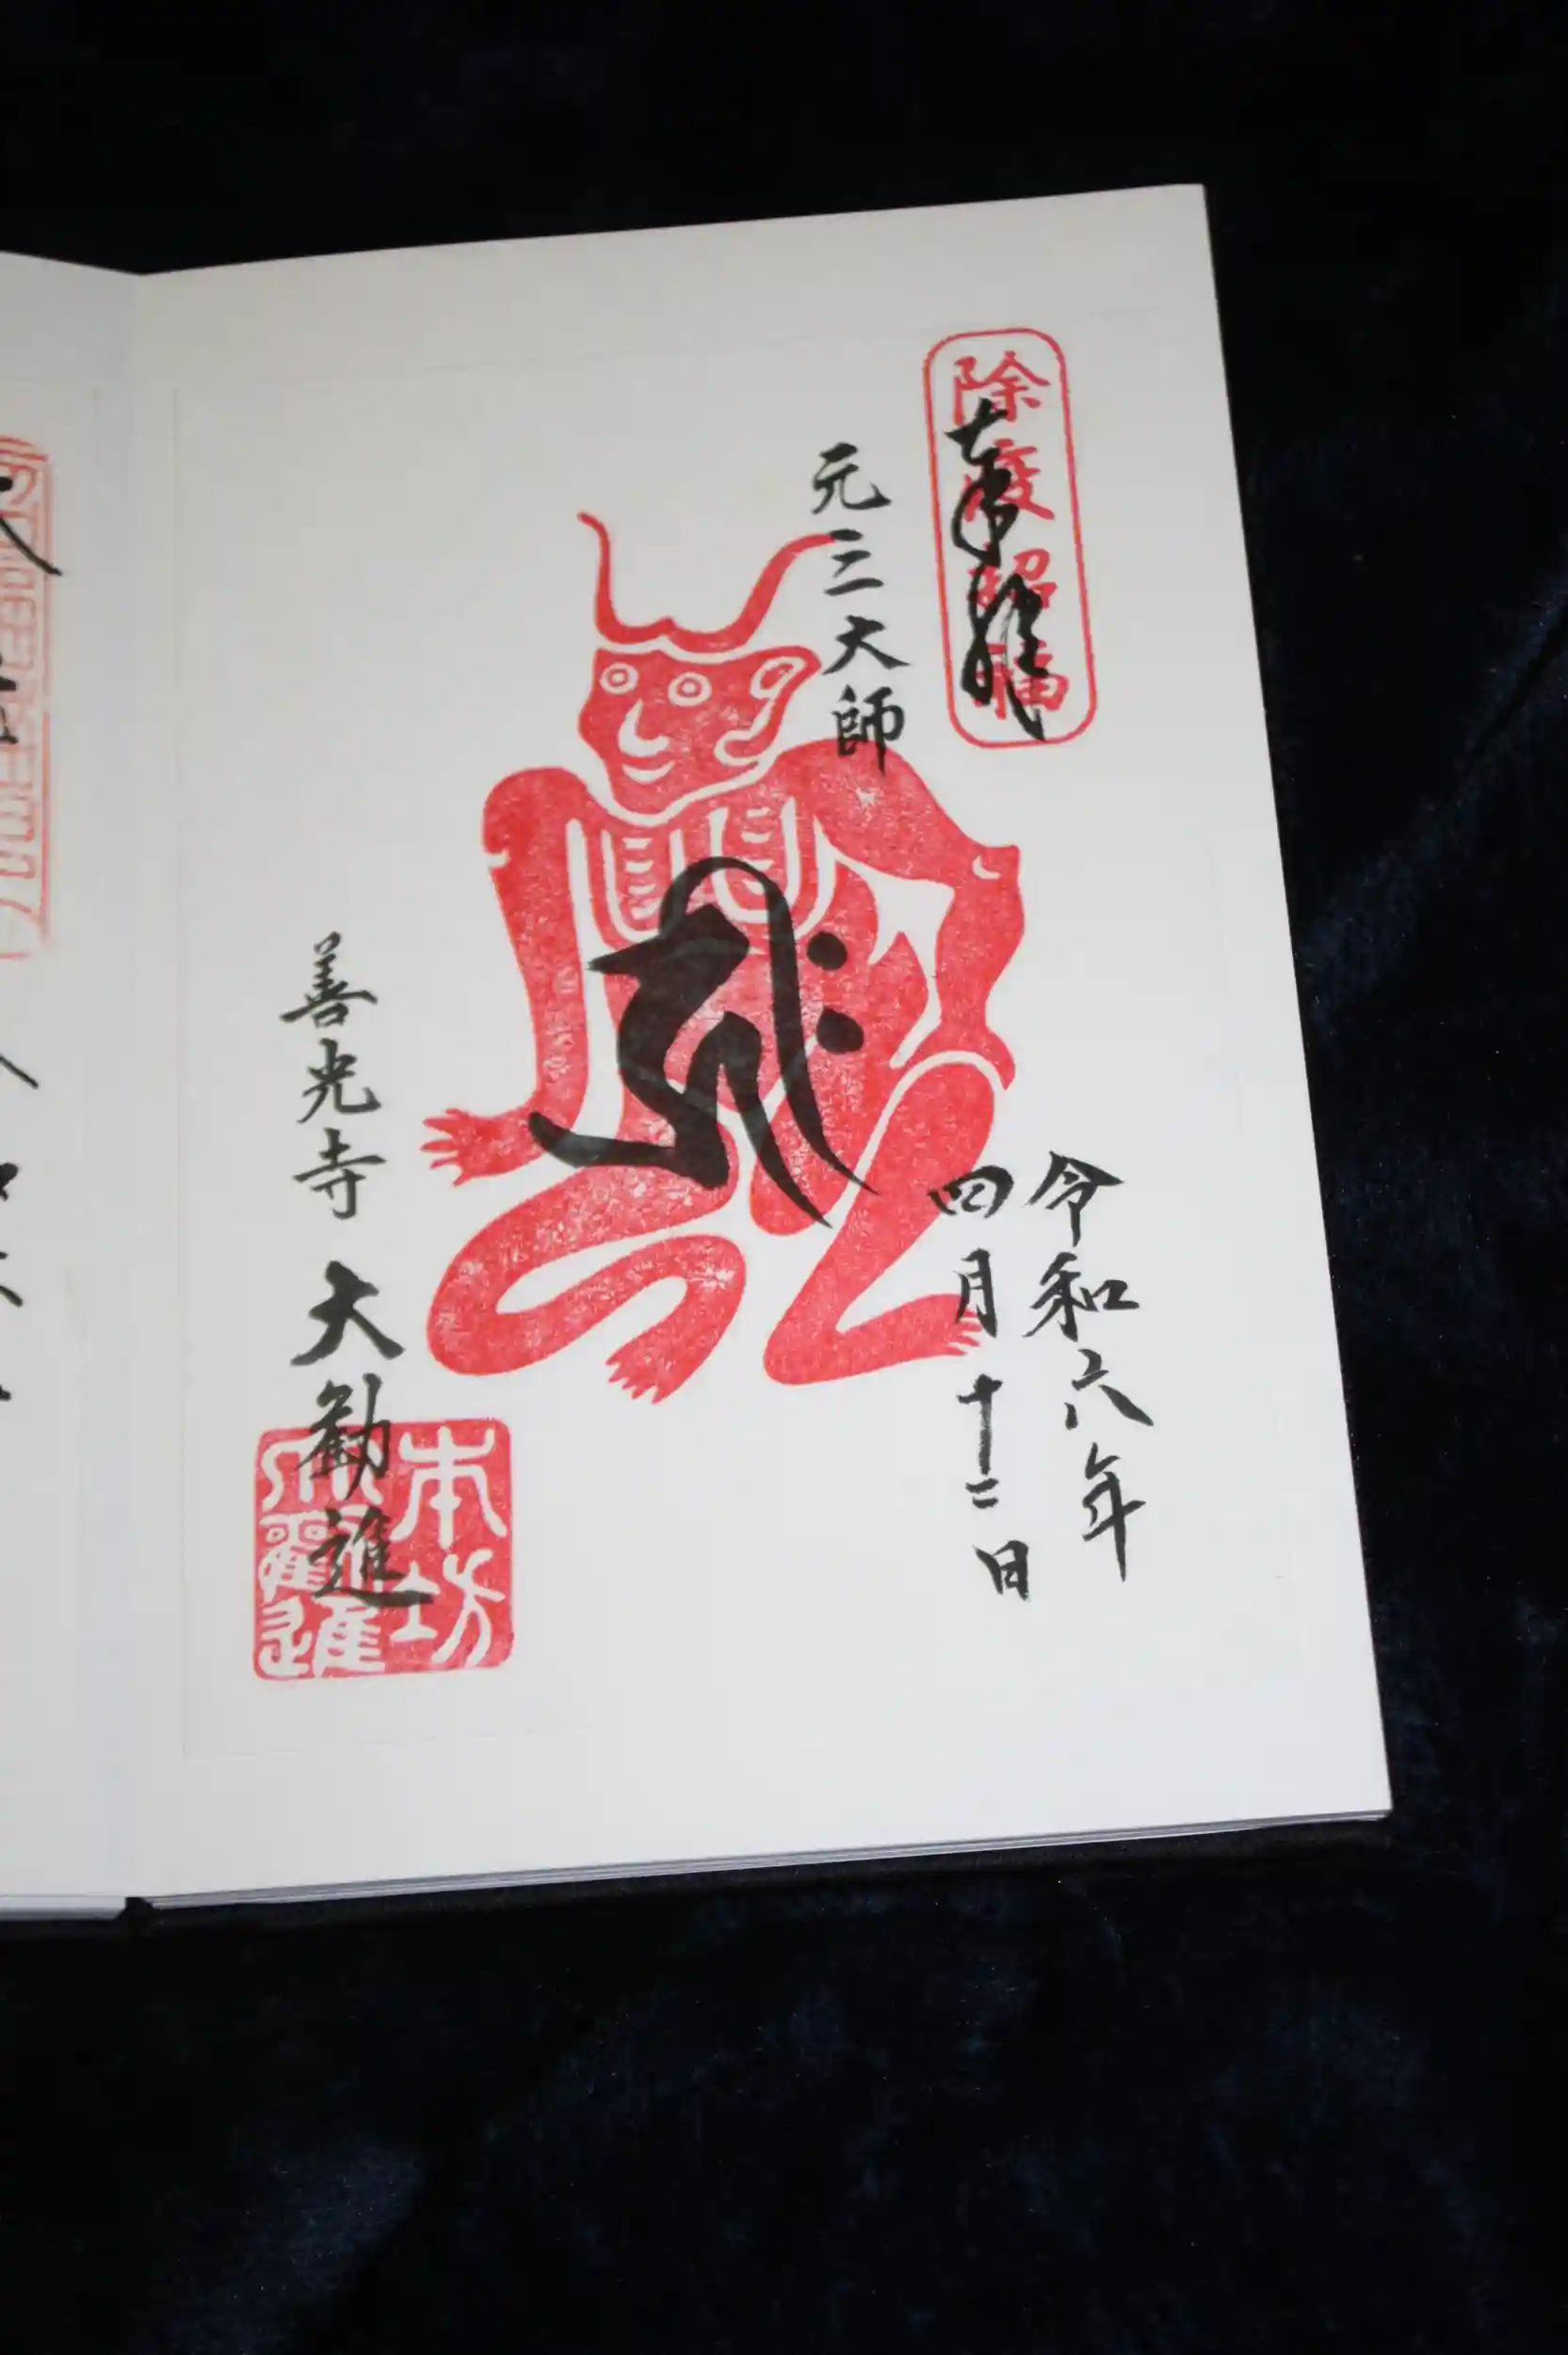 奉拝
除疫招福
元三大師
令和六年
四月十二日
善光寺 大勧進
本坊